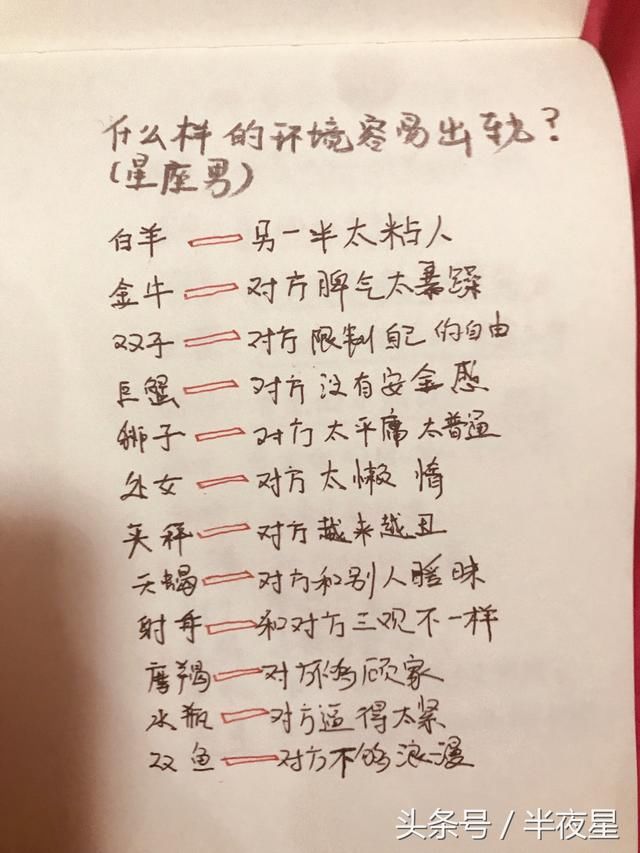 什么样的环境容易出轨?
(星座男)
白羊 — 另一半太粘人
金牛 — 对方脾气太暴躁
双子 — 对方限制自己的自由
巨蟹 — 对方没有安全感
狮子 — 对方太平庸太普通
处女 — 对方太懒惰
天秤 — 对方越来越丑
天蝎 — 对方和别人暧昧
射手 — 和对方三观不一样
摩羯 — 对方不够顾家
水瓶 — 对方逼得太紧
双鱼 — 对方不够浪漫
头条号 / 半夜星